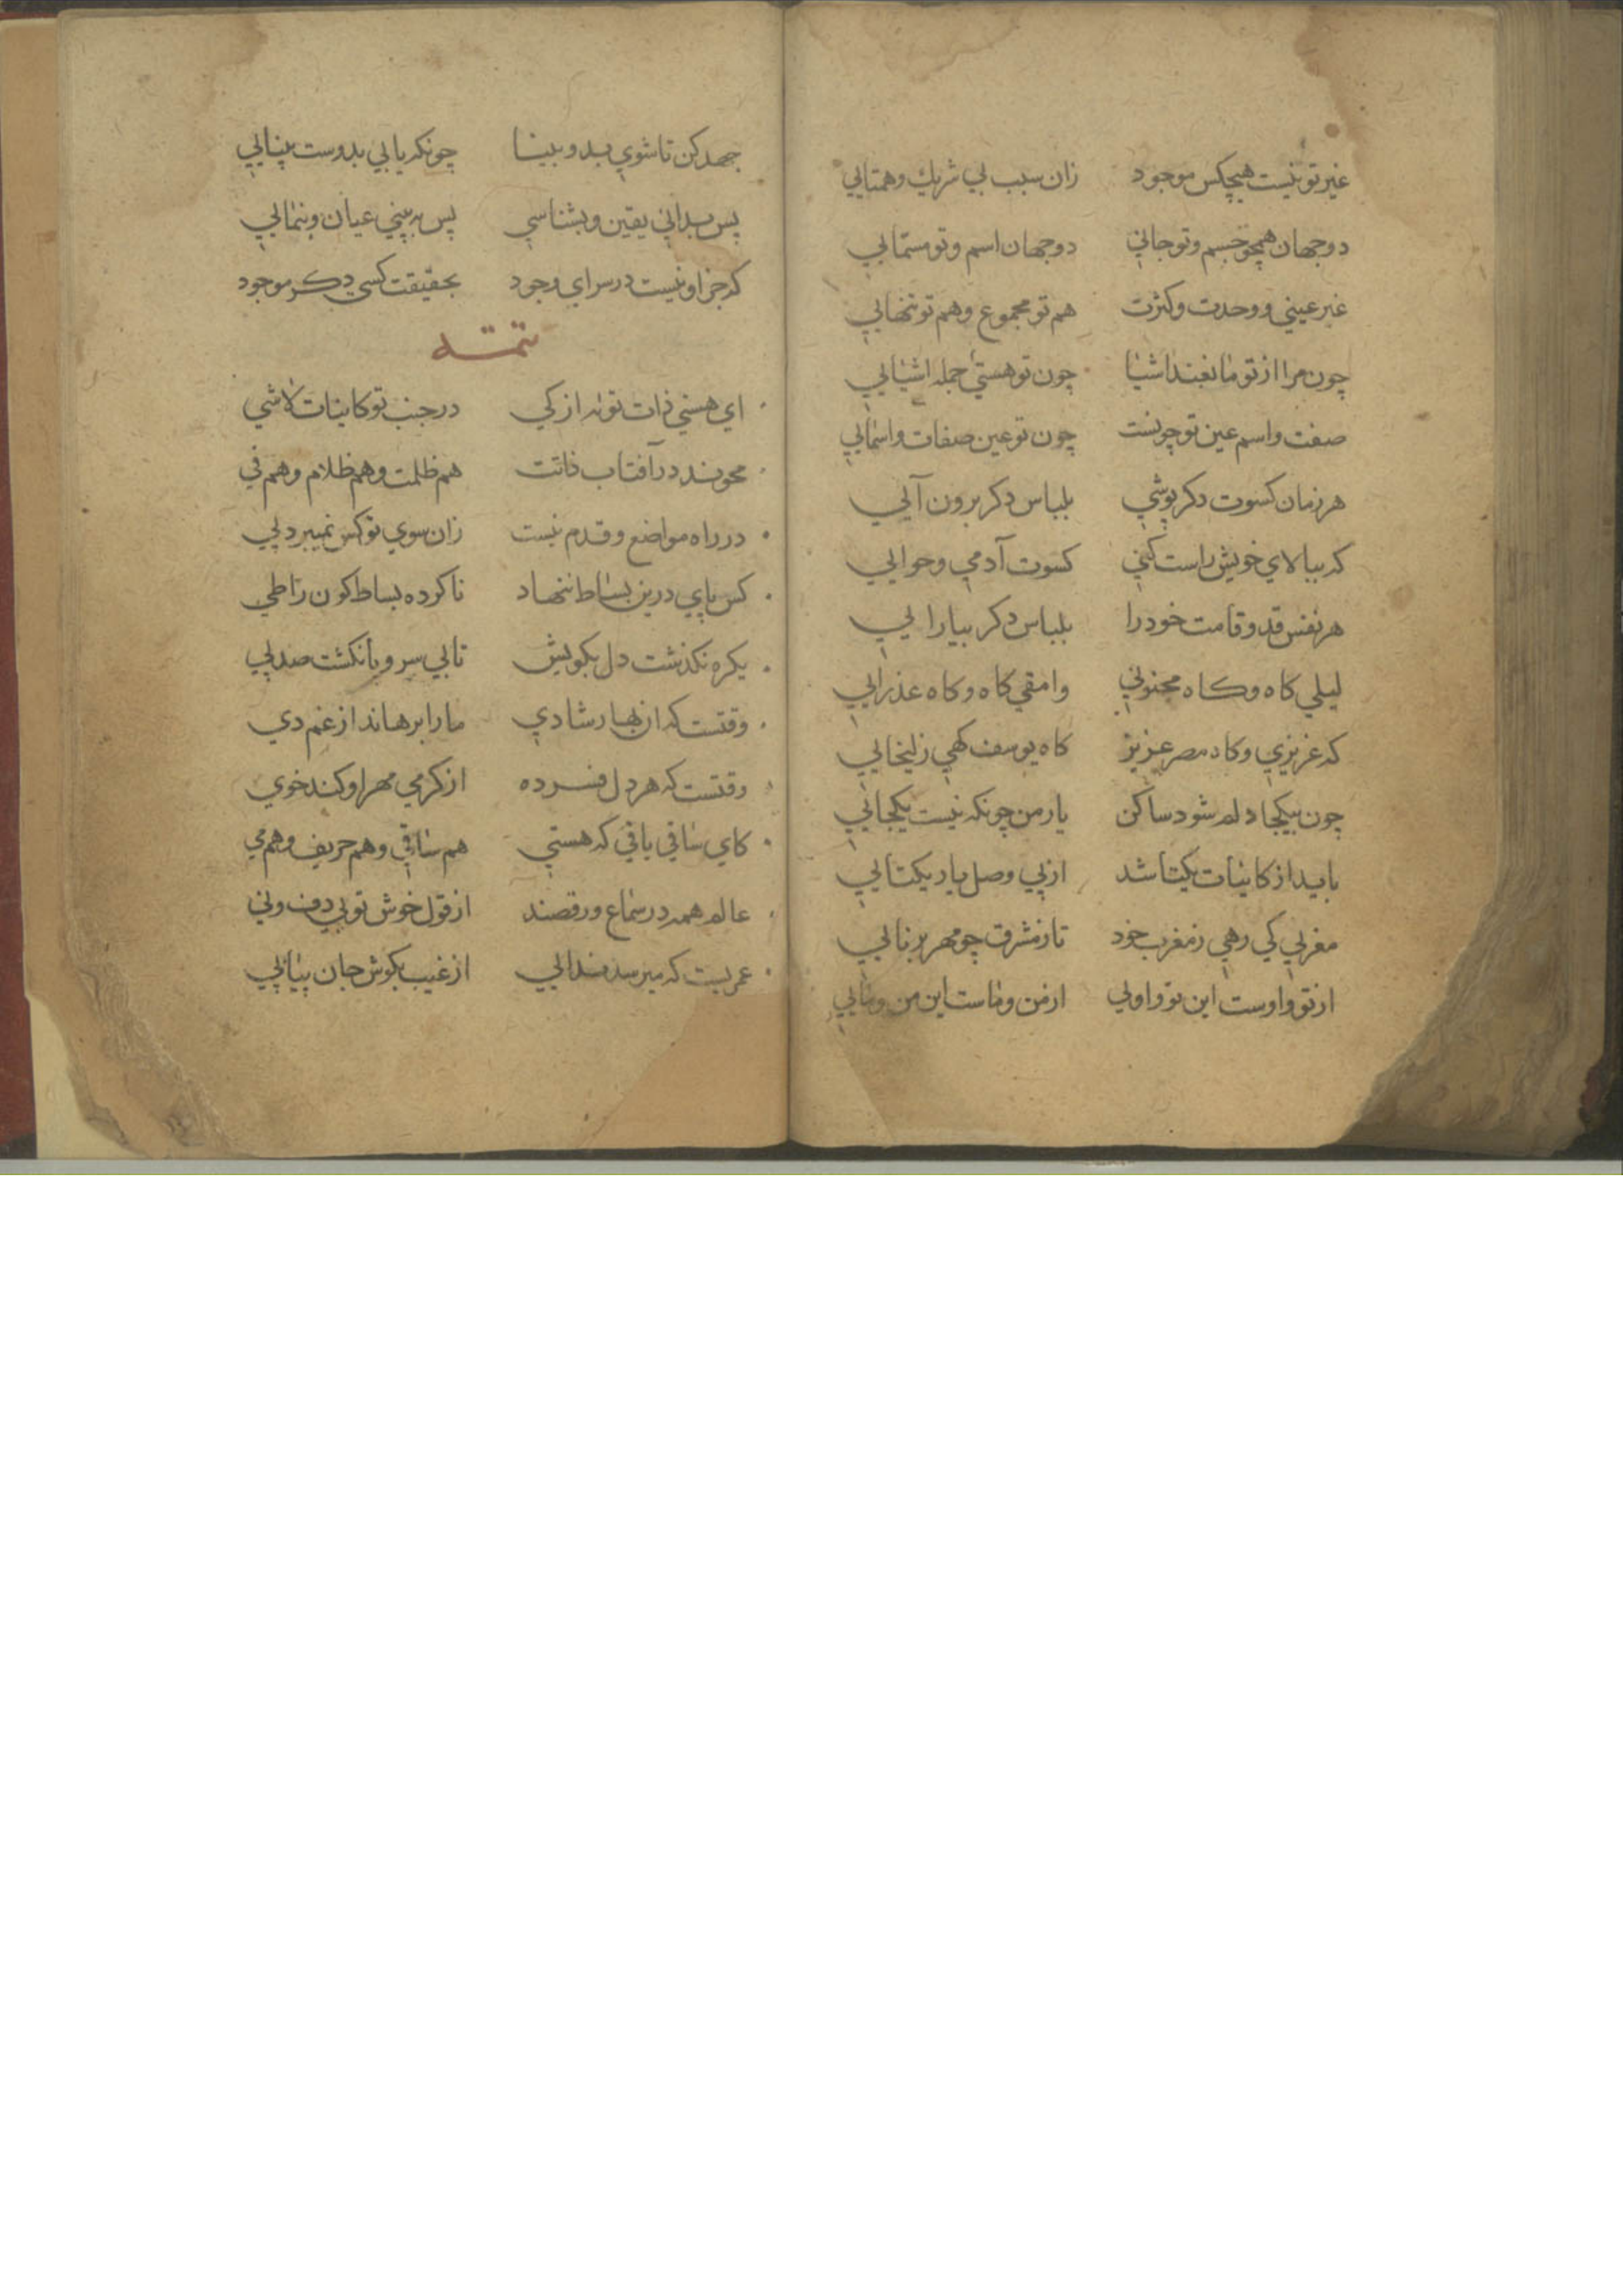 غير تو نيست هيچكس موجود زان سبب بي شريك وهمتايي
دو جهان همچو جسم وتو جاني دو جهان اسم وتو مسمايي
غير عيني ووحدت وكثرت هم تو مجموع وهم تو تنهايي
چون مرا از تو مانعند اشيا چون تو هستي جمله اشيايي
صفت واسم عين تو چونست چون تو عين صفات واسمايي
هر زمان كسوت دكر پوشي بلباس دكر برون آيي
كه ببالاي خويش راست كني كسوت آدمي وحوايي
هر نفس قد وقامت خود را بلباس دكر بيارايي
ليلي كاه وكاه مجنوني وامقي كاه وكاه عذرايي
كه عزيزي وكاه مصر عزيز كاه يوسف كهي زليخايي
چون بيكجا دلم شود ساكن يار من چونكه نيست يكجايي
بايد از كاينات يكتا شد از پي وصل يار يكتايي
مغربي كي رهي ز مغرب خود تا ز مشرق چو مهر برنايي
از تو واوست اين تو واويي از من وماست اين من ومايي
جهد كن تا شوي بدو بينا چونكه يابي بدوست بينايي
پس بداني يقين وبشناسي پس ببيني عيان وبنمايي
كه جز او نيست در سراي وجود بحقيقت كسي دكر موجود
تتمـه
اي هستي ذات تو نه از كي در جنب تو كاينات لاشي
محوند در آفتاب ذاتت هم ظلمت وهم ظلام وهم في
در راه مواضع وقدم نيست زان سوي تو كس نميبرد پي
كس پاي درين بساط ننهاد ناكرده بساط كون را طي
يكره نكذشت دل بكويش تا بي سر وپا نكشت صد پي
وقتست كه از بهار شادي ما را برهاند از غم دي
وقتست كه هر دل فسرده از كرمي مهر او كند خوي
كاي ساقي باقي كه هستي هم ساقي وهم حريف وهم مي
عالم همه در سماع ورقصند از قول خوش تو بي دف وني
عمريست كه ميرسد ندايي از غيب بكوش جان پياپي